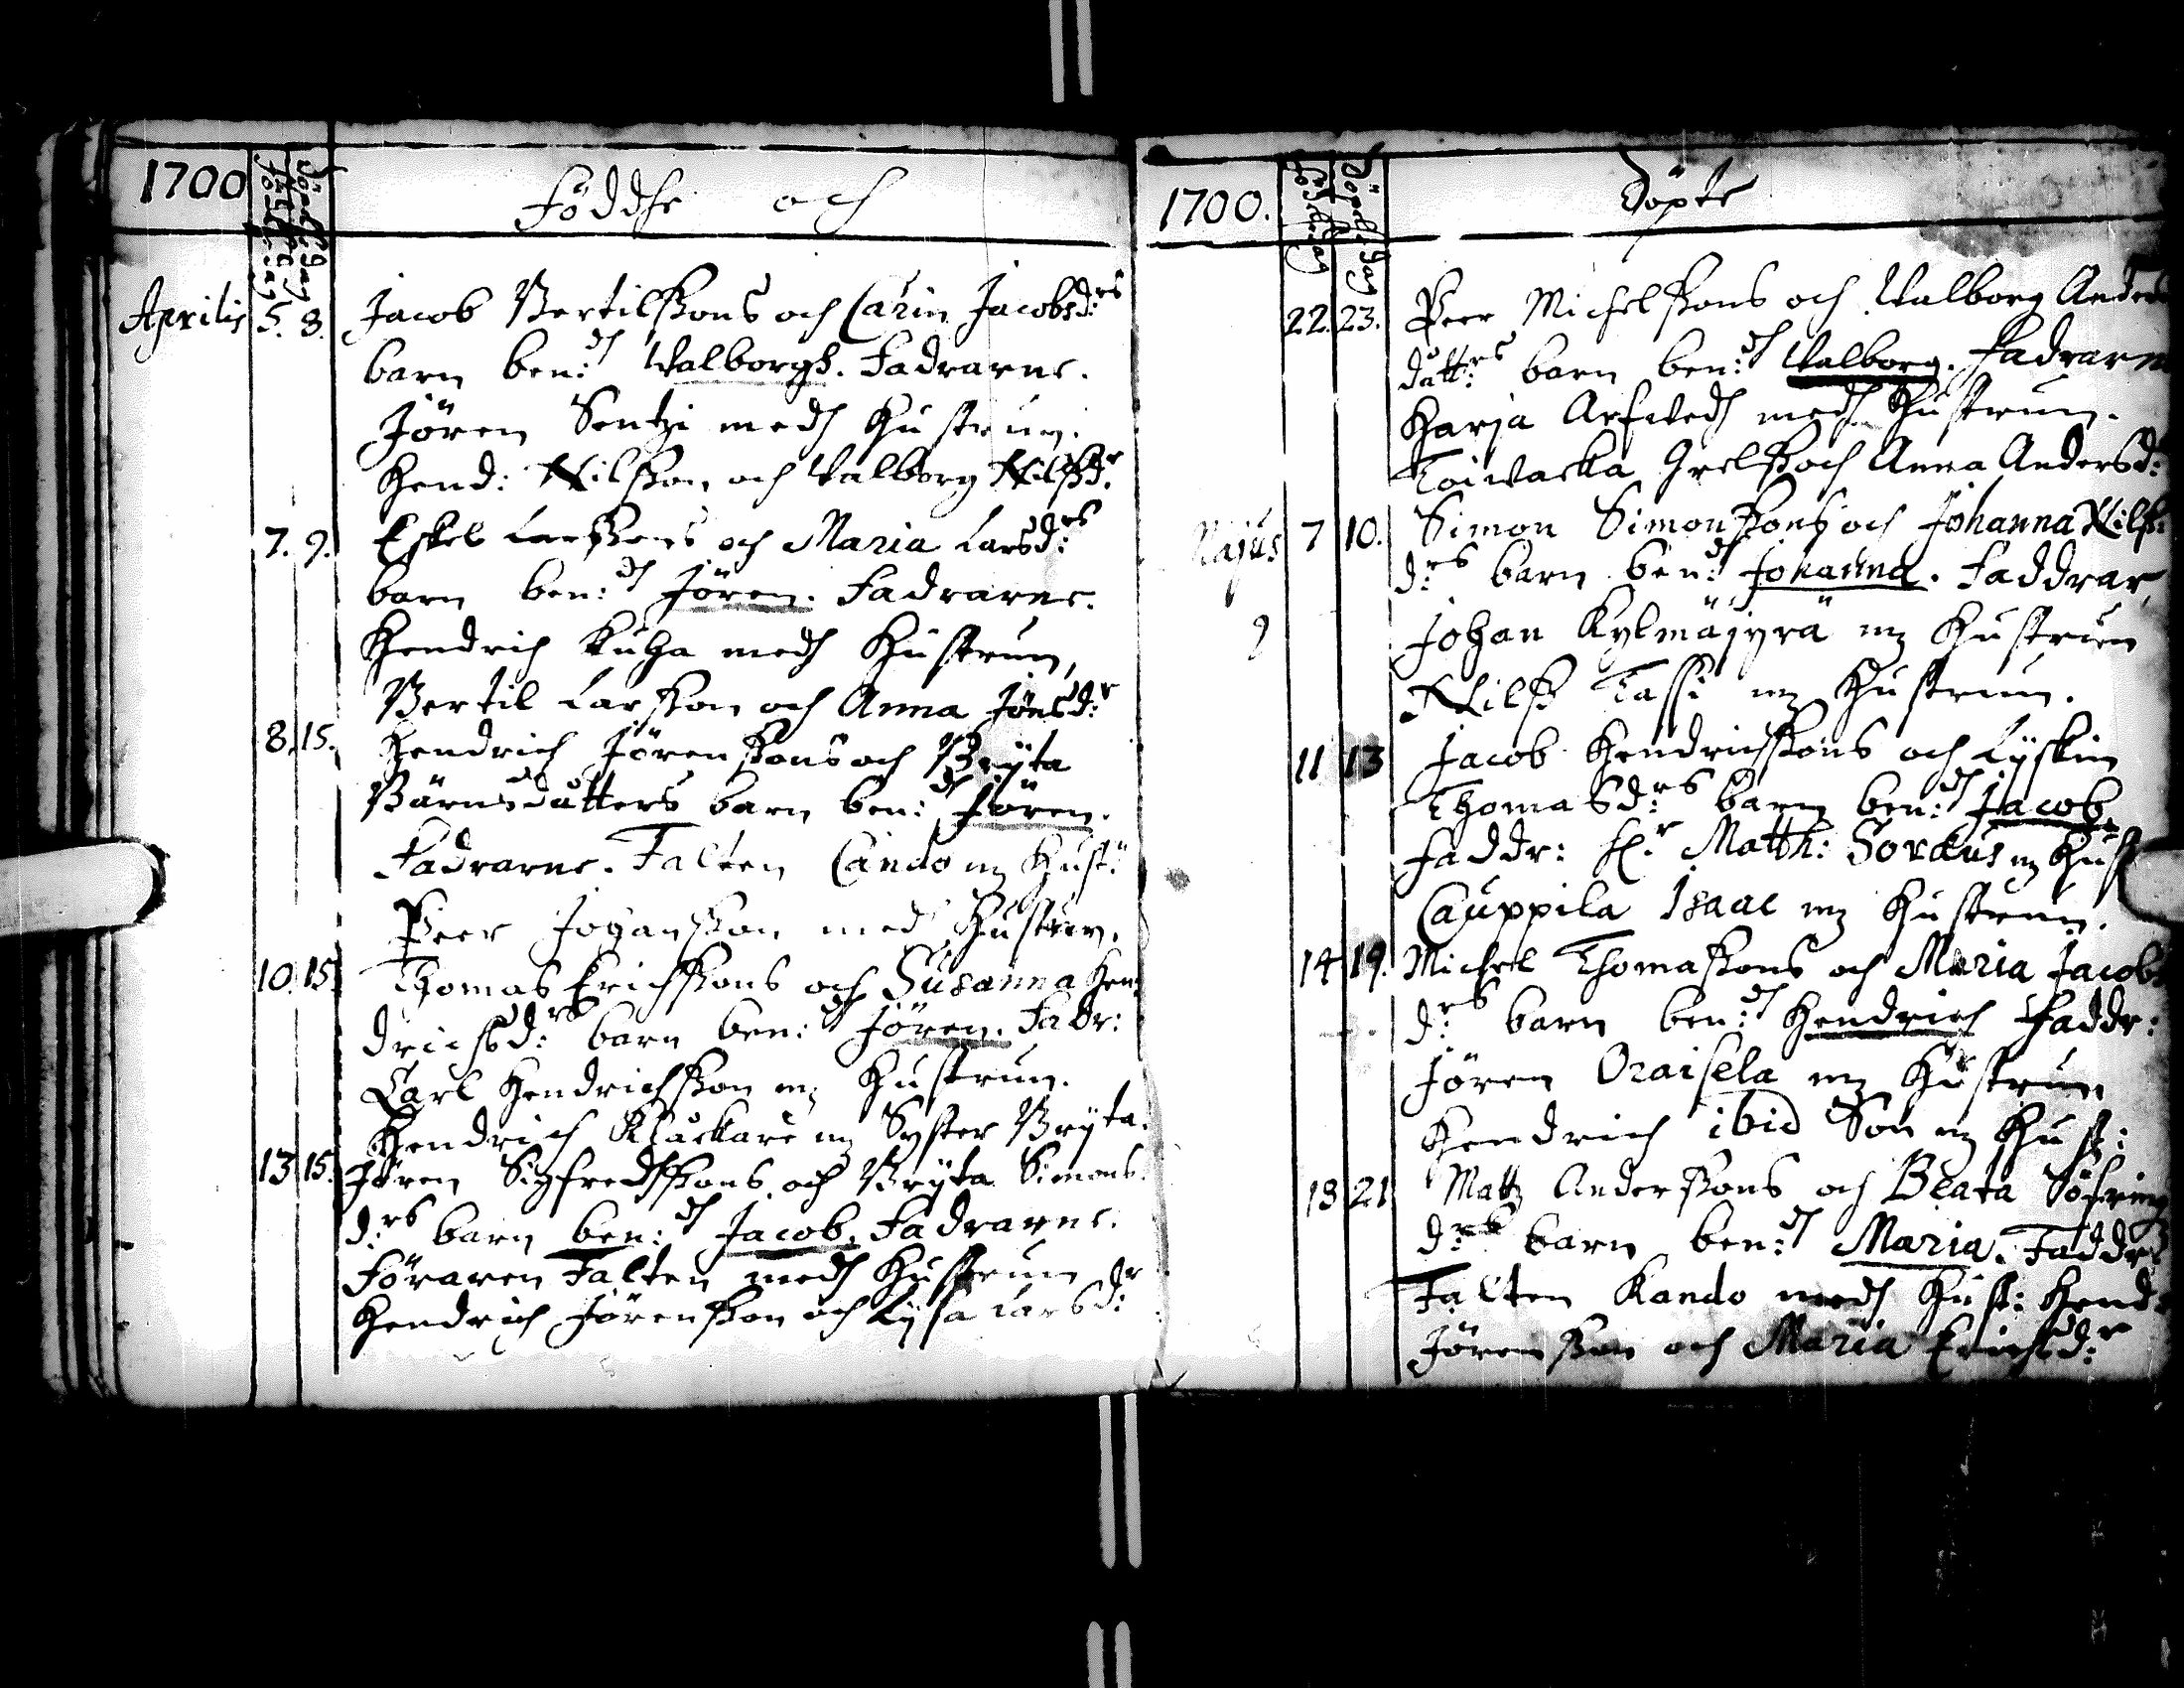 1700
Födelsedag
Döpelsedag
Föddse och
Aprilis 5. 8. Jacob Bertilssons och Carin Jacobsd:rs
barn ben:dh Valborgh. Fadrarne.
Jören Sentzi medh hustrun.
Hend: Nilsson och Valborg Nilssd:r
7. 9. Eskel Larssons och Maria Larsd:rs
barn ben:dh Jören. Fadrarne.
Hendrich Kuha medh Hustrun,
Bertil Larsson och Anna Jönsd:r
8. 15. Hendrich Jörenssons och Bryta
Bärnsdåtters barn ben:dh Jören.
Fadrarne. Falten Cando m Hust:
Peer Johansson med Hustrun.
10. 15. Thomas Erichssons och Susanna Hen
drichsd:rs barn ben:dh Jören. Fadr:
Carl Hendrichsson m Hustrun.
Hendrich Klåckare m Syster Bryta.
13 15. Jören Sigfredhssons och Bryta Simons
d:rs barn ben:dh Jacob. Fadrarne.
Föraren Falten medh Hustrun
Hendrich Jörensson och Lysa Larsd:r
1700.
Födelsedag
Döpelsedag
Döpte
22. 23. Peer Michelssons och Valborg Anders
dått:rs barn ben:dh Valborg. Fadrarn
Harja Arfvedh medh Hustrun.
Toivacka Grelss och Anna Andersd:
Majus 7 10. Simon Simonssons och Johanna Nilss:
d:rs barn ben:dh Johanna. Faddrar,
Johan Kylmäjyrä m Hustrun
Nilss Tassi m Hustrun.
11 13 Jacob Hendrichssons och Lyskin
Thomasd:rs barn ben:dh Jacob
Faddr: H:r Matth: Sordus m Hust
Cauppila Isaac m Hustrun.
14 19. Michel Thomassons och Maria Jacobs
d:rs barn ben:dh Hendrich Faddr:
Jören Oraisela m Hustrun
Hendrich ibid Son m Hust:
18 21 Mattz Anderssons och Beata Söfrings
d:rs barn ben:dh Maria. Faddr
Falten Kando medh Hust: Hend
Jörensson och Maria Erichsd:r